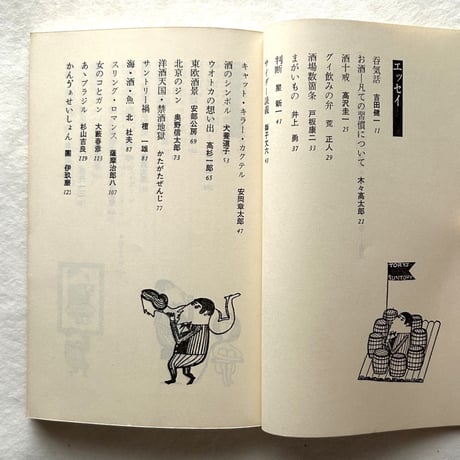 エッセイ
呑気話 吉田健一 11
お酒—凡ての習慣について 木々高太郎 21
酒十戒 高沢圭一 25
グイ飲みの弁 荒 正人 29
酒場数箇条 戸板康二 33
まがいもの 井上 勇 37
判断 星 新一 41
サイダー談義 獅子文六 43
キャット・キラー・カクテル 安岡章太郎 47
酒のシンボル 犬養道子 53
ウオトカの想い出 高杉一郎 65
東欧酒景 安部公房 69
北京のジン 奥野信太郎 73
洋酒天国・禁酒地獄 かたがたぜんじ 77
サントリー禍 檀 一雄 81
海・酒・魚 北 杜夫 87
スリング・ロマンス 薩摩治郎八 107
女のコとガン 大藪春彦 115
あゝブラジル 杉山吉良 119
かんうぁせいしょん 團 伊玖磨 125
TORYS
SUNTORY